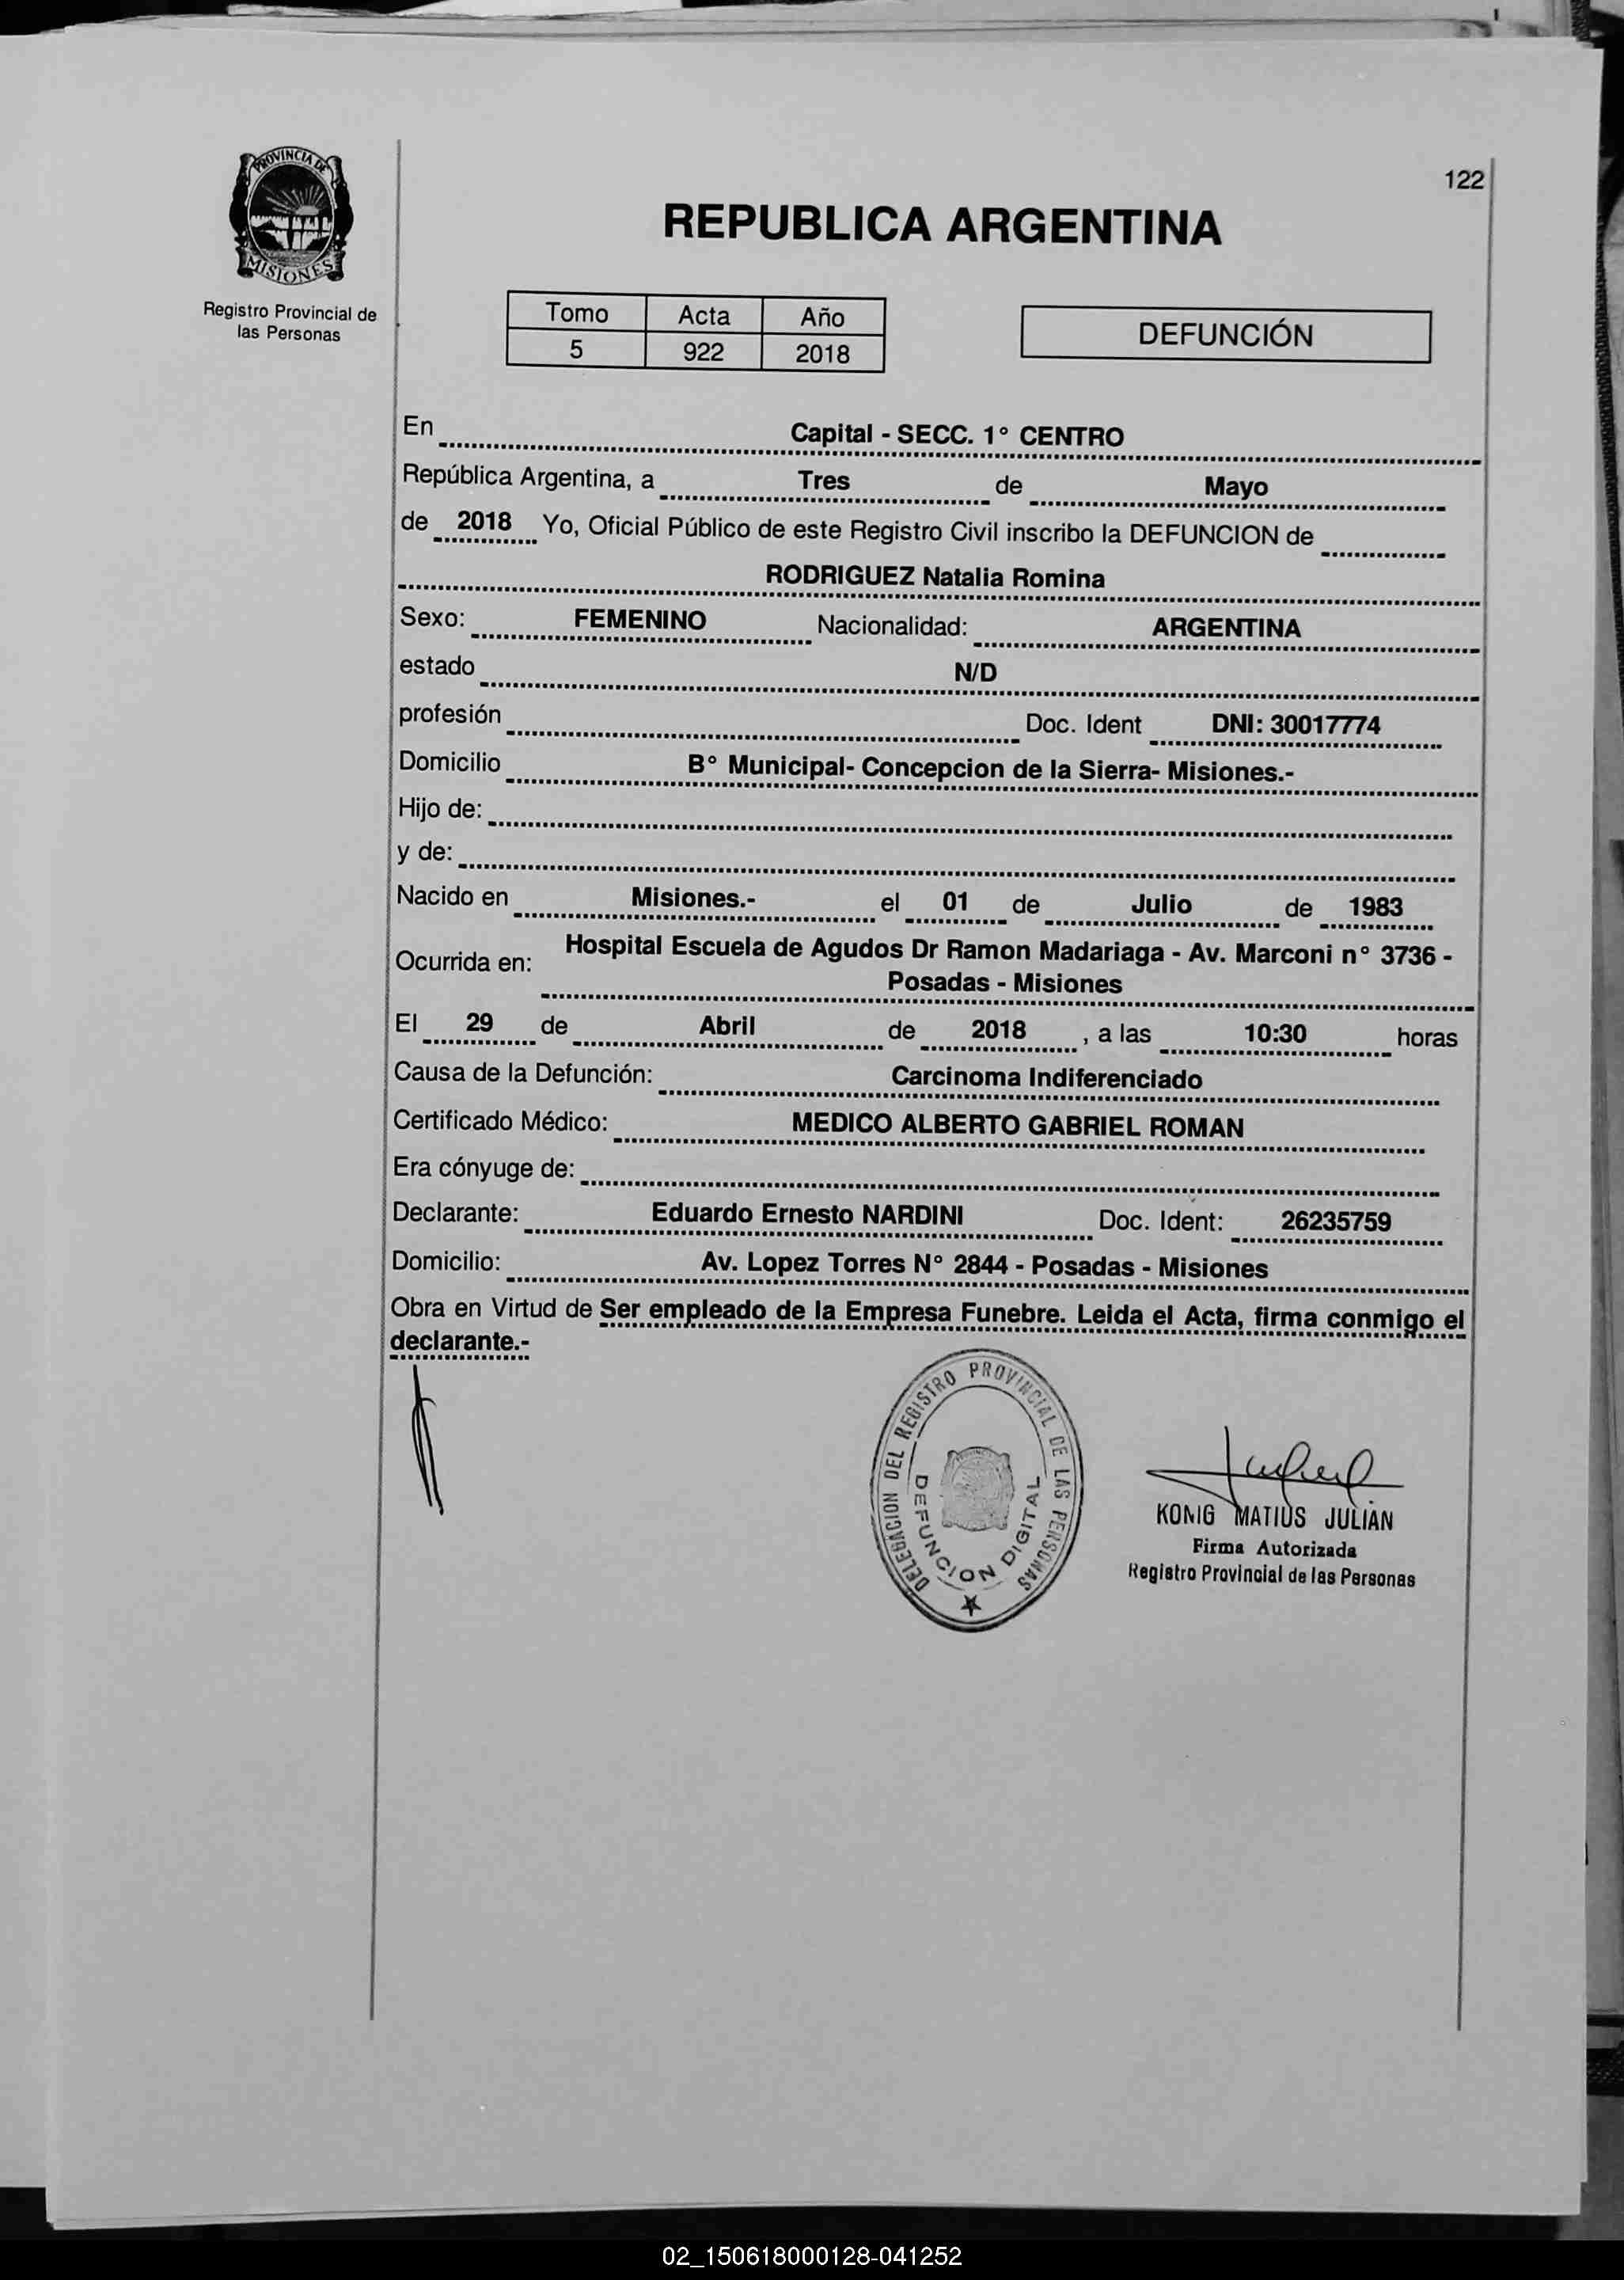 PROVINCIA DE
MISIONES
Registro Provincial de
las Personas
122
REPUBLICA ARGENTINA
Tomo Acta Año
5 922 2018
DEFUNCIÓN
En Capital - SECC. 1° CENTRO
República Argentina, a Tres de Mayo
de 2018 Yo, Oficial Público de este Registro Civil inscribo la DEFUNCION de
RODRIGUEZ Natalia Romina
Sexo: FEMENINO Nacionalidad: ARGENTINA
estado N/D
profesión Doc. Ident DNI: 30017774
Domicilio B° Municipal- Concepcion de la Sierra- Misiones.-
Hijo de:
y de:
Nacido en Misiones.- el 01 de Julio de 1983
Ocurrida en: Hospital Escuela de Agudos Dr Ramon Madariaga - Av. Marconi n° 3736 -
Posadas - Misiones
El 29 de Abril de 2018 , a las 10:30 horas
Causa de la Defunción: Carcinoma Indiferenciado
Certificado Médico: MEDICO ALBERTO GABRIEL ROMAN
Era cónyuge de:
Declarante: Eduardo Ernesto NARDINI Doc. Ident: 26235759
Domicilio: Av. Lopez Torres N° 2844 - Posadas - Misiones
Obra en Virtud de Ser empleado de la Empresa Funebre. Leida el Acta, firma conmigo el
declarante.-
DELEGACION DEL REGISTRO PROVINCIAL DE LAS PERSONAS
DEFUNCION DIGITAL
KONIG MATIUS JULIAN
Firma Autorizada
Registro Provincial de las Personas
02_150618000128-041252